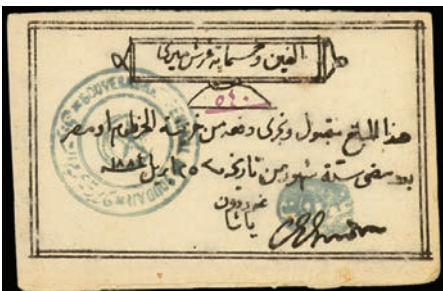 الفين وخمسماية غرش ميرى
٥٤٠
هذا المبلغ مقبول وتجرى دفعه من خزينة الخرطوم او مصر
بعد مضى ستة شهور من تاريخه ٢٥ ابريل ١٨٨٤
غوردون
باشا